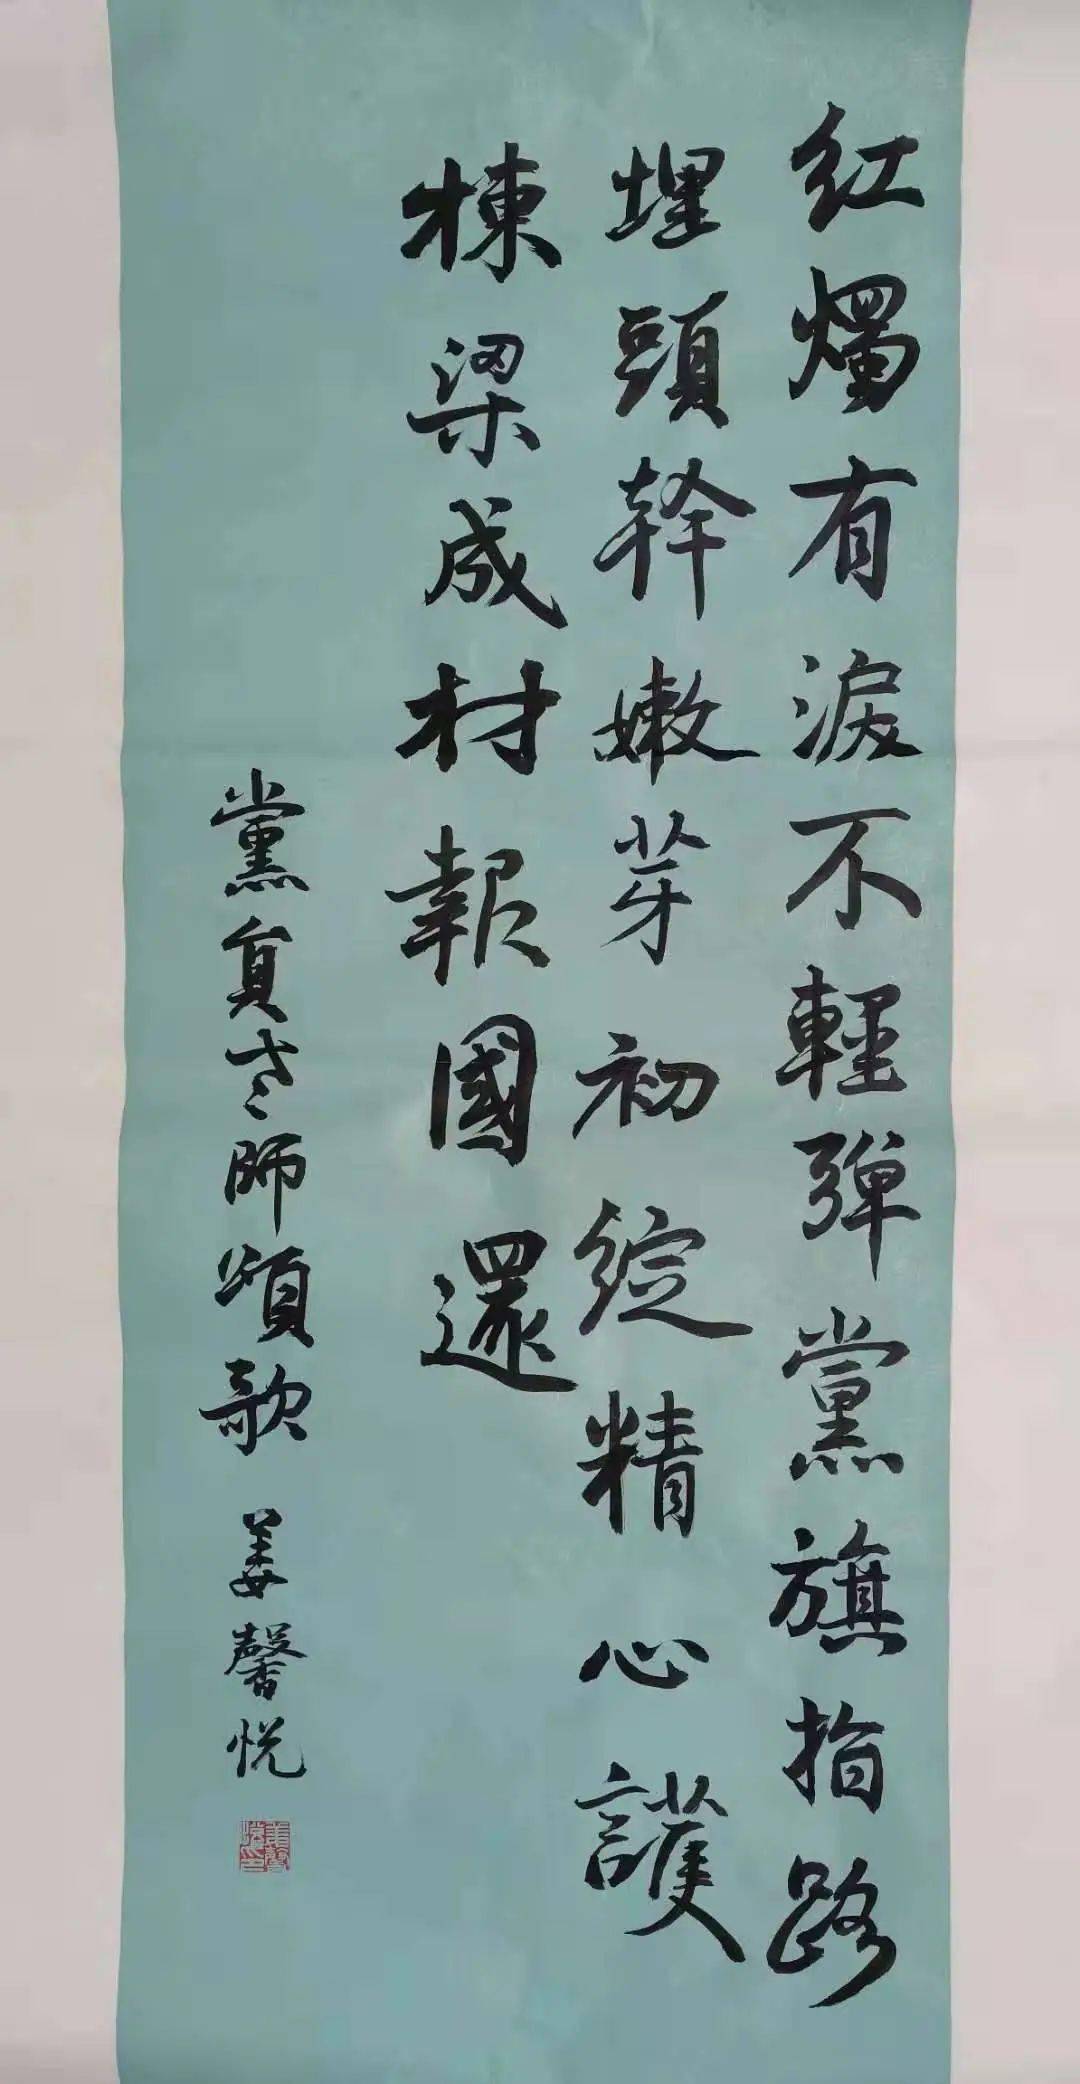 紅燭有淚不輕彈黨旗指路
埋頭幹嫩芽初綻精心護
棟梁成材報國還
黨員老師頌歌 姜馨悅
姜馨悅印